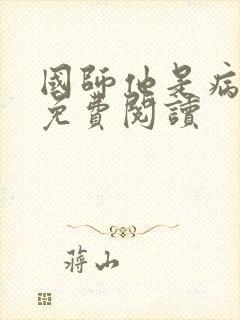 國師他是病
免費閱讀
蔣山